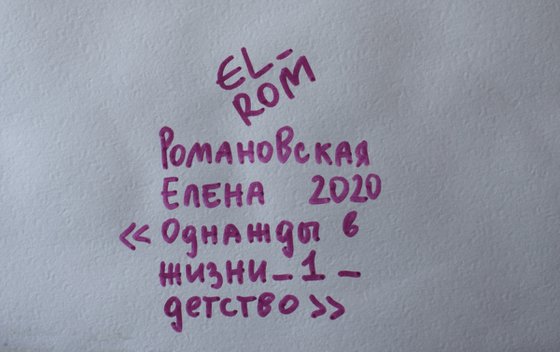 EL-
ROM
Романовская
Елена 2020
«Однажды в
жизни_1_
детство»